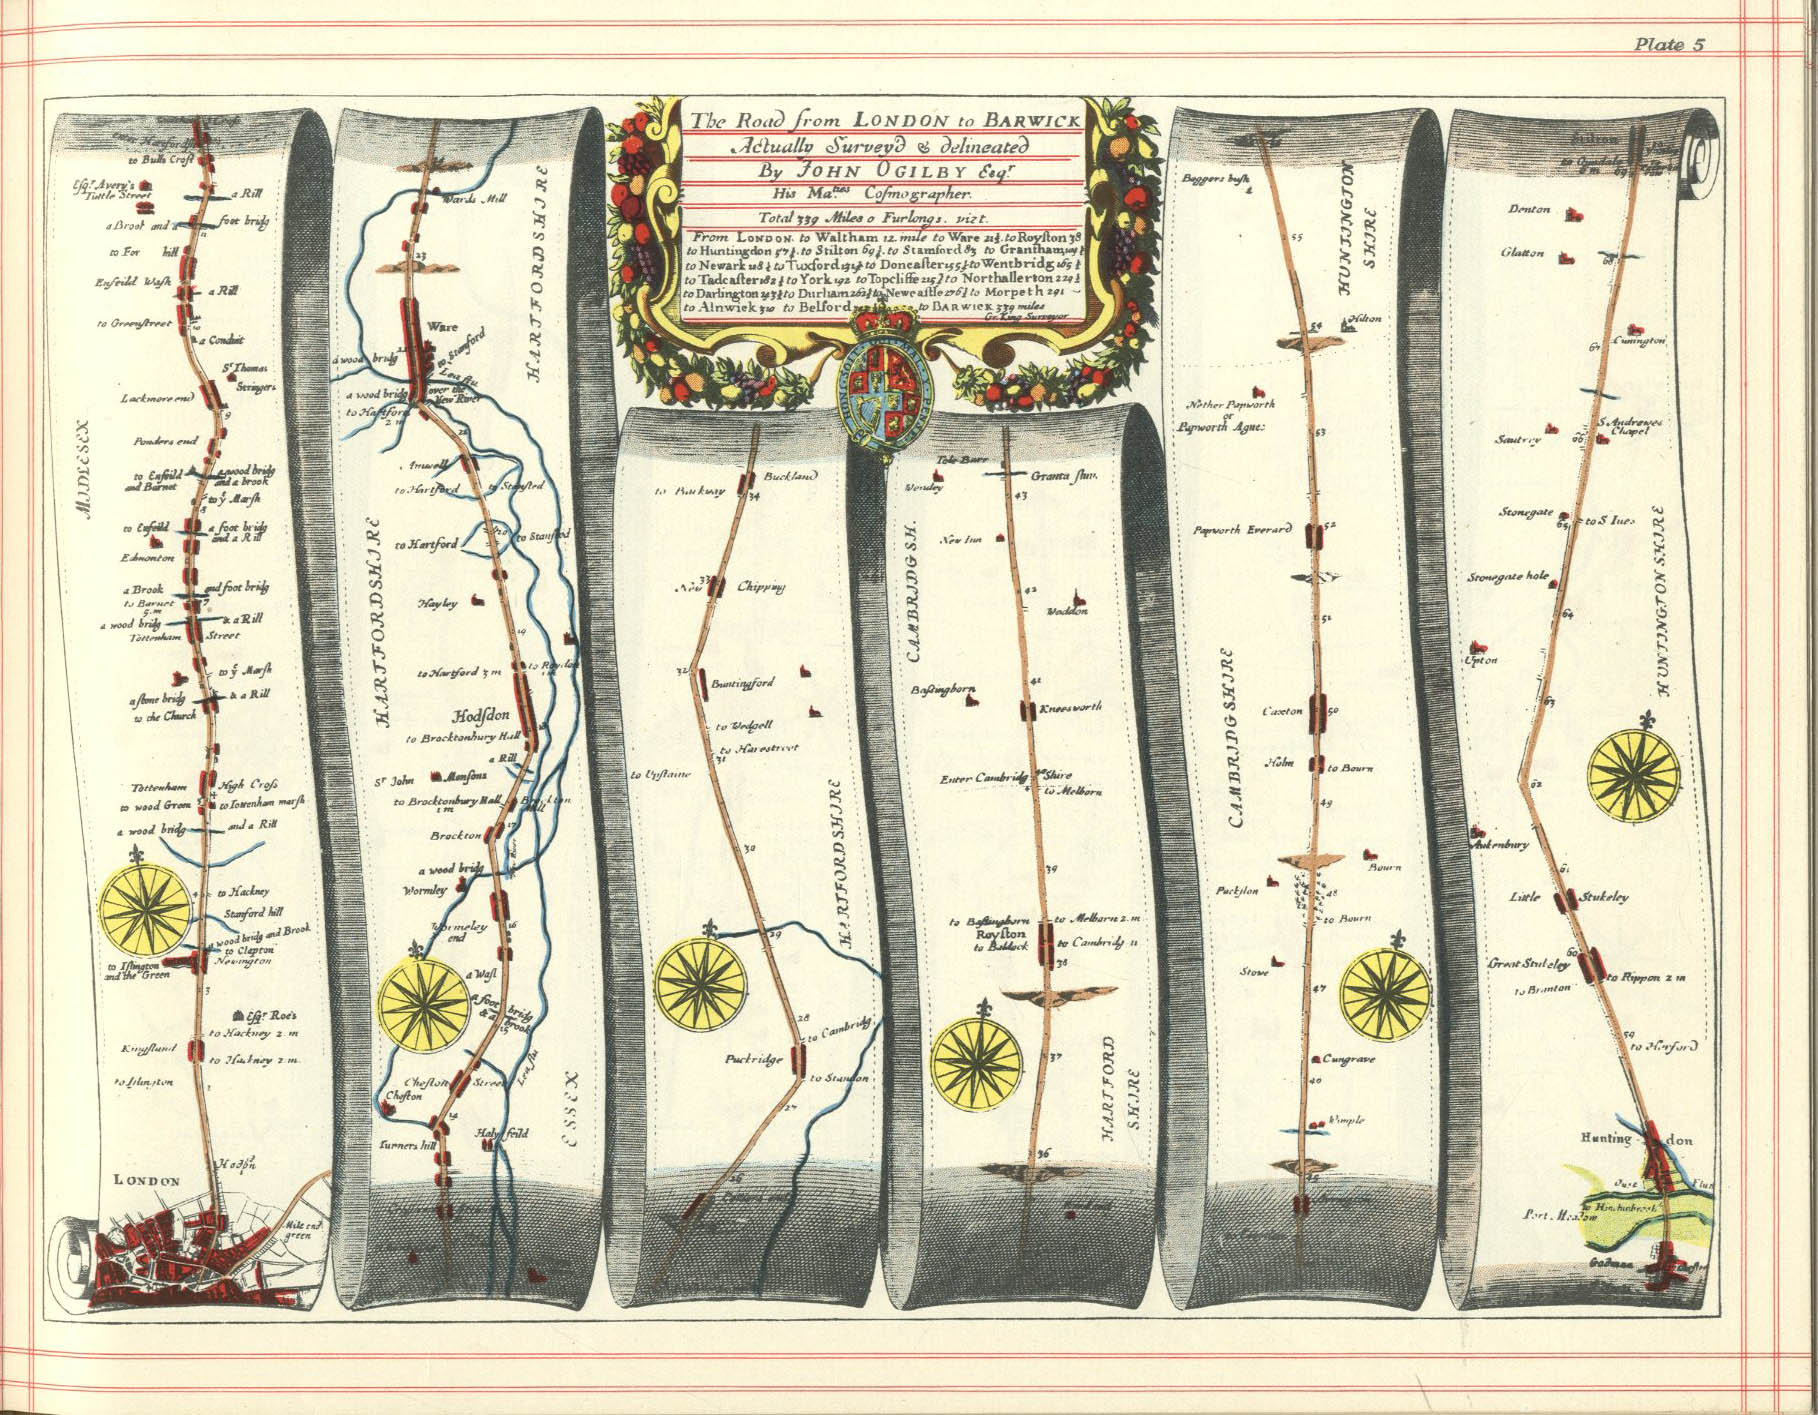 Plate 5
The Road from LONDON to BARWICK
Actually Survey'd & delineated
By JOHN OGILBY Esqr
His Maties Cosmographer.
Total 339 Miles 0 Furlongs. vizt.
From LONDON to Waltham 12 mile to Ware 21½ to Royston 38
to Huntingdon 57½ to Stilton 69½ to Stamford 83 to Grantham
to Newark 118½ to Tuxford to Doncaster 155½ to Wentbridg 165½
to Tadcaster 182½ to York 192 to Topcliffe 215½ to Northallerton 224½
to Darlington 243½ to Durham 262½ to Newcastle 276½ to Morpeth 291
to Alnwick 310 to Belford to BARWICK 339 miles
Gr. King Surveyor
to Bulls Cross
Esqr Avery's
Tuttle Street
a Rill
a Brook and a foot bridg
11
to For hill
Enfeild Wash
a Rill
to Greenstreet
10
a Conduit
Sr Thomas
Stringers
Lackmore end
9
Ponders end
to Enfeild
and Barnet
a wood bridg
and a brook
to ye Marsh
8
to Enfeild
a foot bridg
and a Rill
Edmonton
a Brook and foot bridg
to Barnet
5 m
7
a wood bridg & a Rill
Tottenham Street
to ye Marsh
a stone bridg & a Rill
to the Church
MIDLESEX
Tottenham High Cross
to wood Green
5
to Tottenham marsh
a wood bridg and a Rill
4
to Hackney
Stanford hill
a wood bridg and Brook
to Clapton
to Islington
and the Green
Newington
3
Esqr Roe's
to Hackney 2 m
Kingsland
to Hackney 2 m
to Islington
1
LONDON
Mile end
green
Wards Mill
23
HARTFORDSHIRE
Ware
a wood bridg
to Stanford
Lea flu
a wood bridg
over the
New River
to Hartford
2 m
21
Amwell
to Hartford
to Stansted
20
to Hartford
to Stanford
Hayley
19
HARTFORDSHIRE
to Hartford 3 m
to Roydon
Hodsdon
18
to Brocktonbury Hall
a Rill
Sr John Monsons
to Brocktonbury Hall
1 m
17
Brockton
a wood bridg
Wormley
Wormeley
end
16
a Wash
a foot bridg
& a Brook
15
Cheston Street
Cheston
Lea flu
14
Turners hill
Haly feild
ESSEX
to Barkway
Buckland
34
New
33
Chipping
32
Buntingford
to Wedgell
to Harestreet
31
to Upstaine
30
HARTFORDSHIRE
29
28
to Cambridg
Puckridge
to Standon
27
26
Tole Barr
Wendey
Granta fluv.
43
New Inn
42
Waddon
CAMBRIDGSH.
41
Bassingborn
Kneesworth
Enter Cambridg Shire
40
to Melborn
39
to Bassingborn
to Melborn 2 m
Royston
to Baldock
to Cambridg 11
38
37
HARTFORD
SHIRE
36
Beggers bush
HUNTINGTON
SHIRE
55
54
Hilton
Nether Papworth
or
Papworth Agne:
53
Papworth Everard
52
51
CAMBRIDGSHIRE
Caxton
50
Holm
to Bourn
49
Bourn
48
to Bourn
Stowe
47
Cungrave
Wimple
45
Stilton
Denton
Glatton
68
Cunington
67
Sautrey
66
S Andrewes
Chapel
Stonegate
65
to S Iues
Stonegate hole
64
HUNTINGTONSHIRE
Upton
63
62
Aukenbury
61
Little Stukeley
60
Great Stukeley
to Rippon 2 m
to Branton
59
to Harford
Hunting don
Ouse Flu
to Hinchinbrook
Port-Meadow
Godman chester